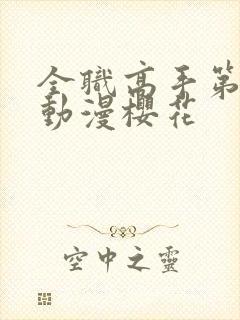 全職高手第
動漫櫻花
空中之靈